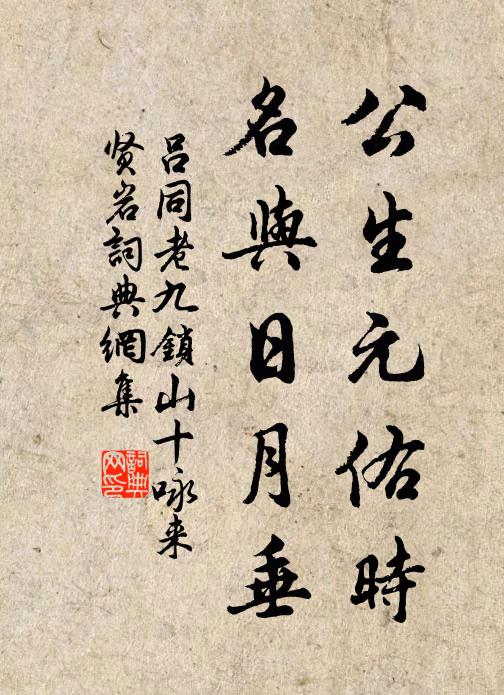 公生元佑時
名與日月垂
吕同老九鎖山十咏来
贤岩詞典網集
詞典
网印